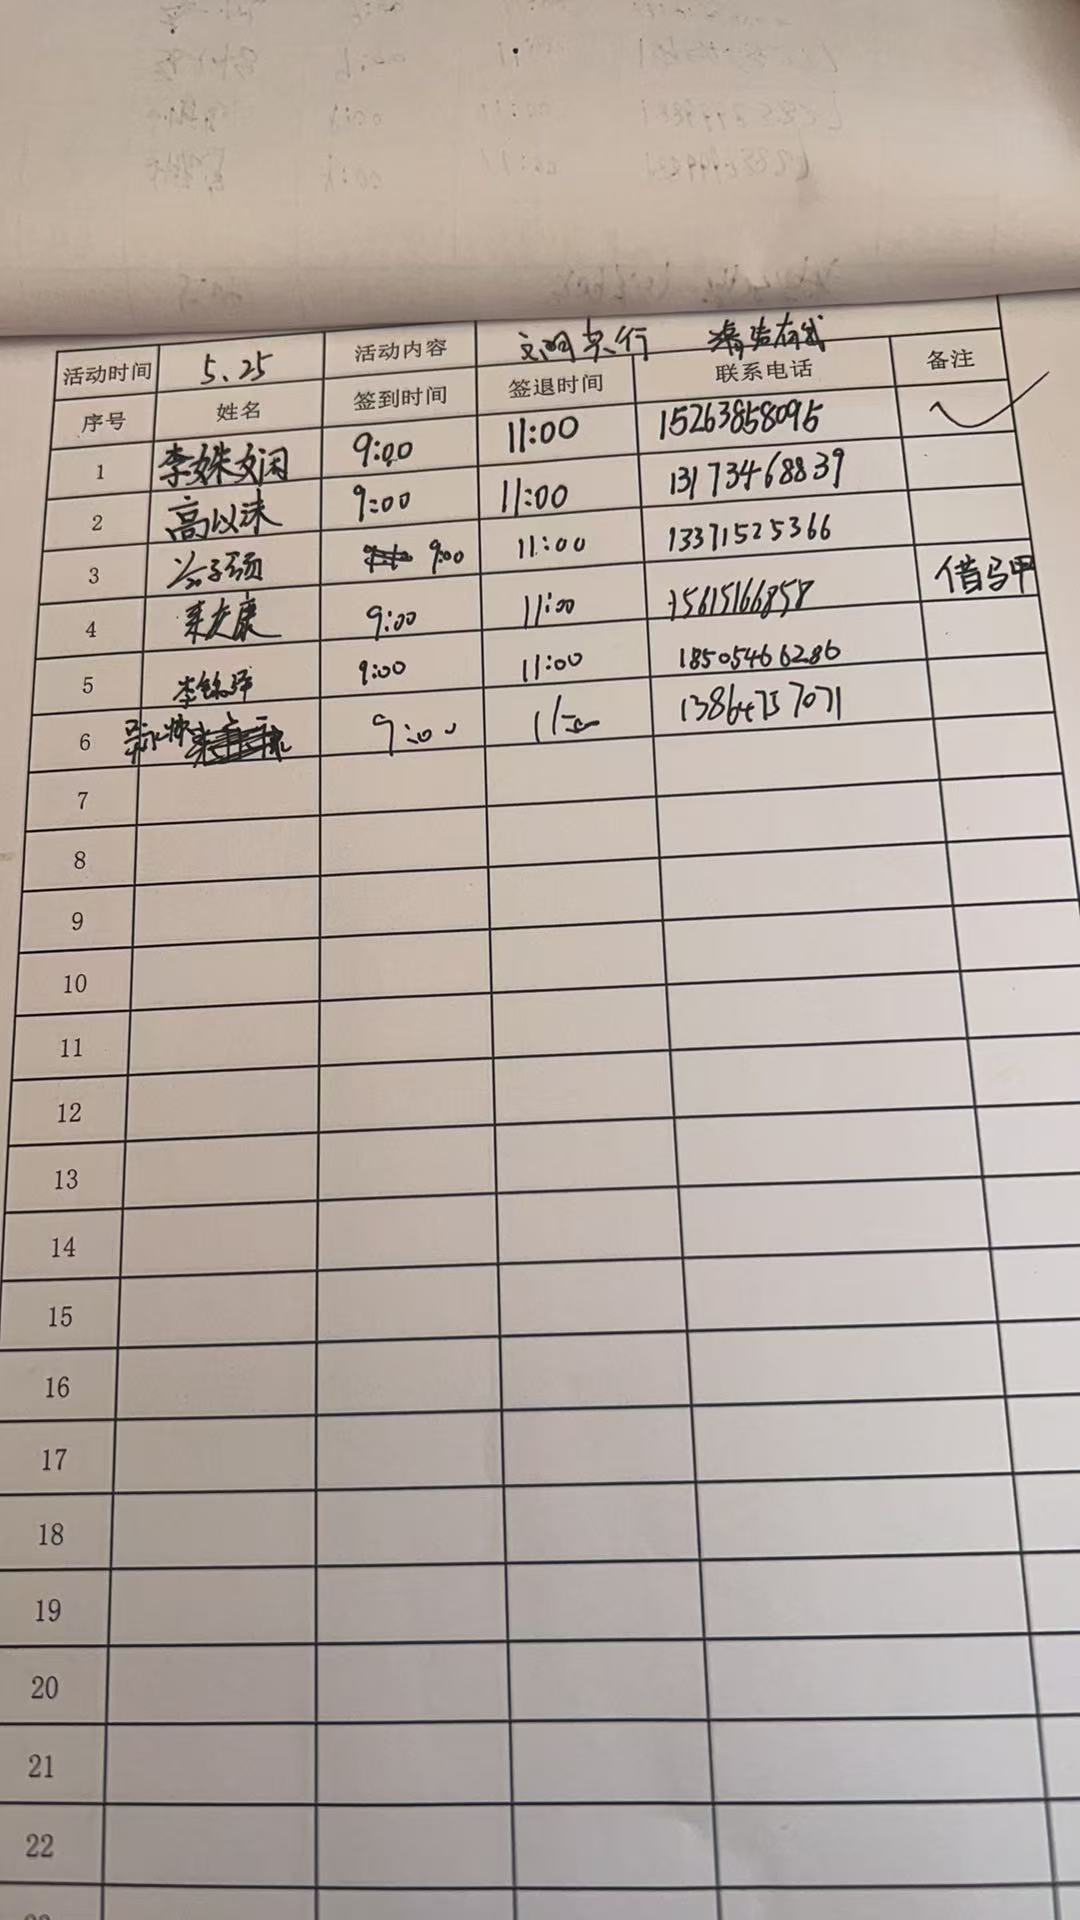 活动时间 5.25 活动内容 文明出行
序号 姓名 签到时间 签退时间 联系电话 备注
1 李姝娴 9:00 11:00 15263858095
2 高以沫 9:00 11:00 13173468839
3 9:00 11:00 13371525366
4 9:00 11:00 15615166858 借马甲
5 李锦泽 9:00 11:00 18505466286
6 9:00 11:00 13864757071
7
8
9
10
11
12
13
14
15
16
17
18
19
20
21
22